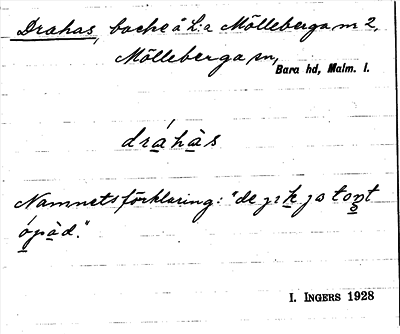 Drahas, backe å L:a Mölleberga nr 2,
Mölleberga sn,
Bara hd, Malm. l.
dráhàs
Namnets förklaring: "de
I. INGERS 1928